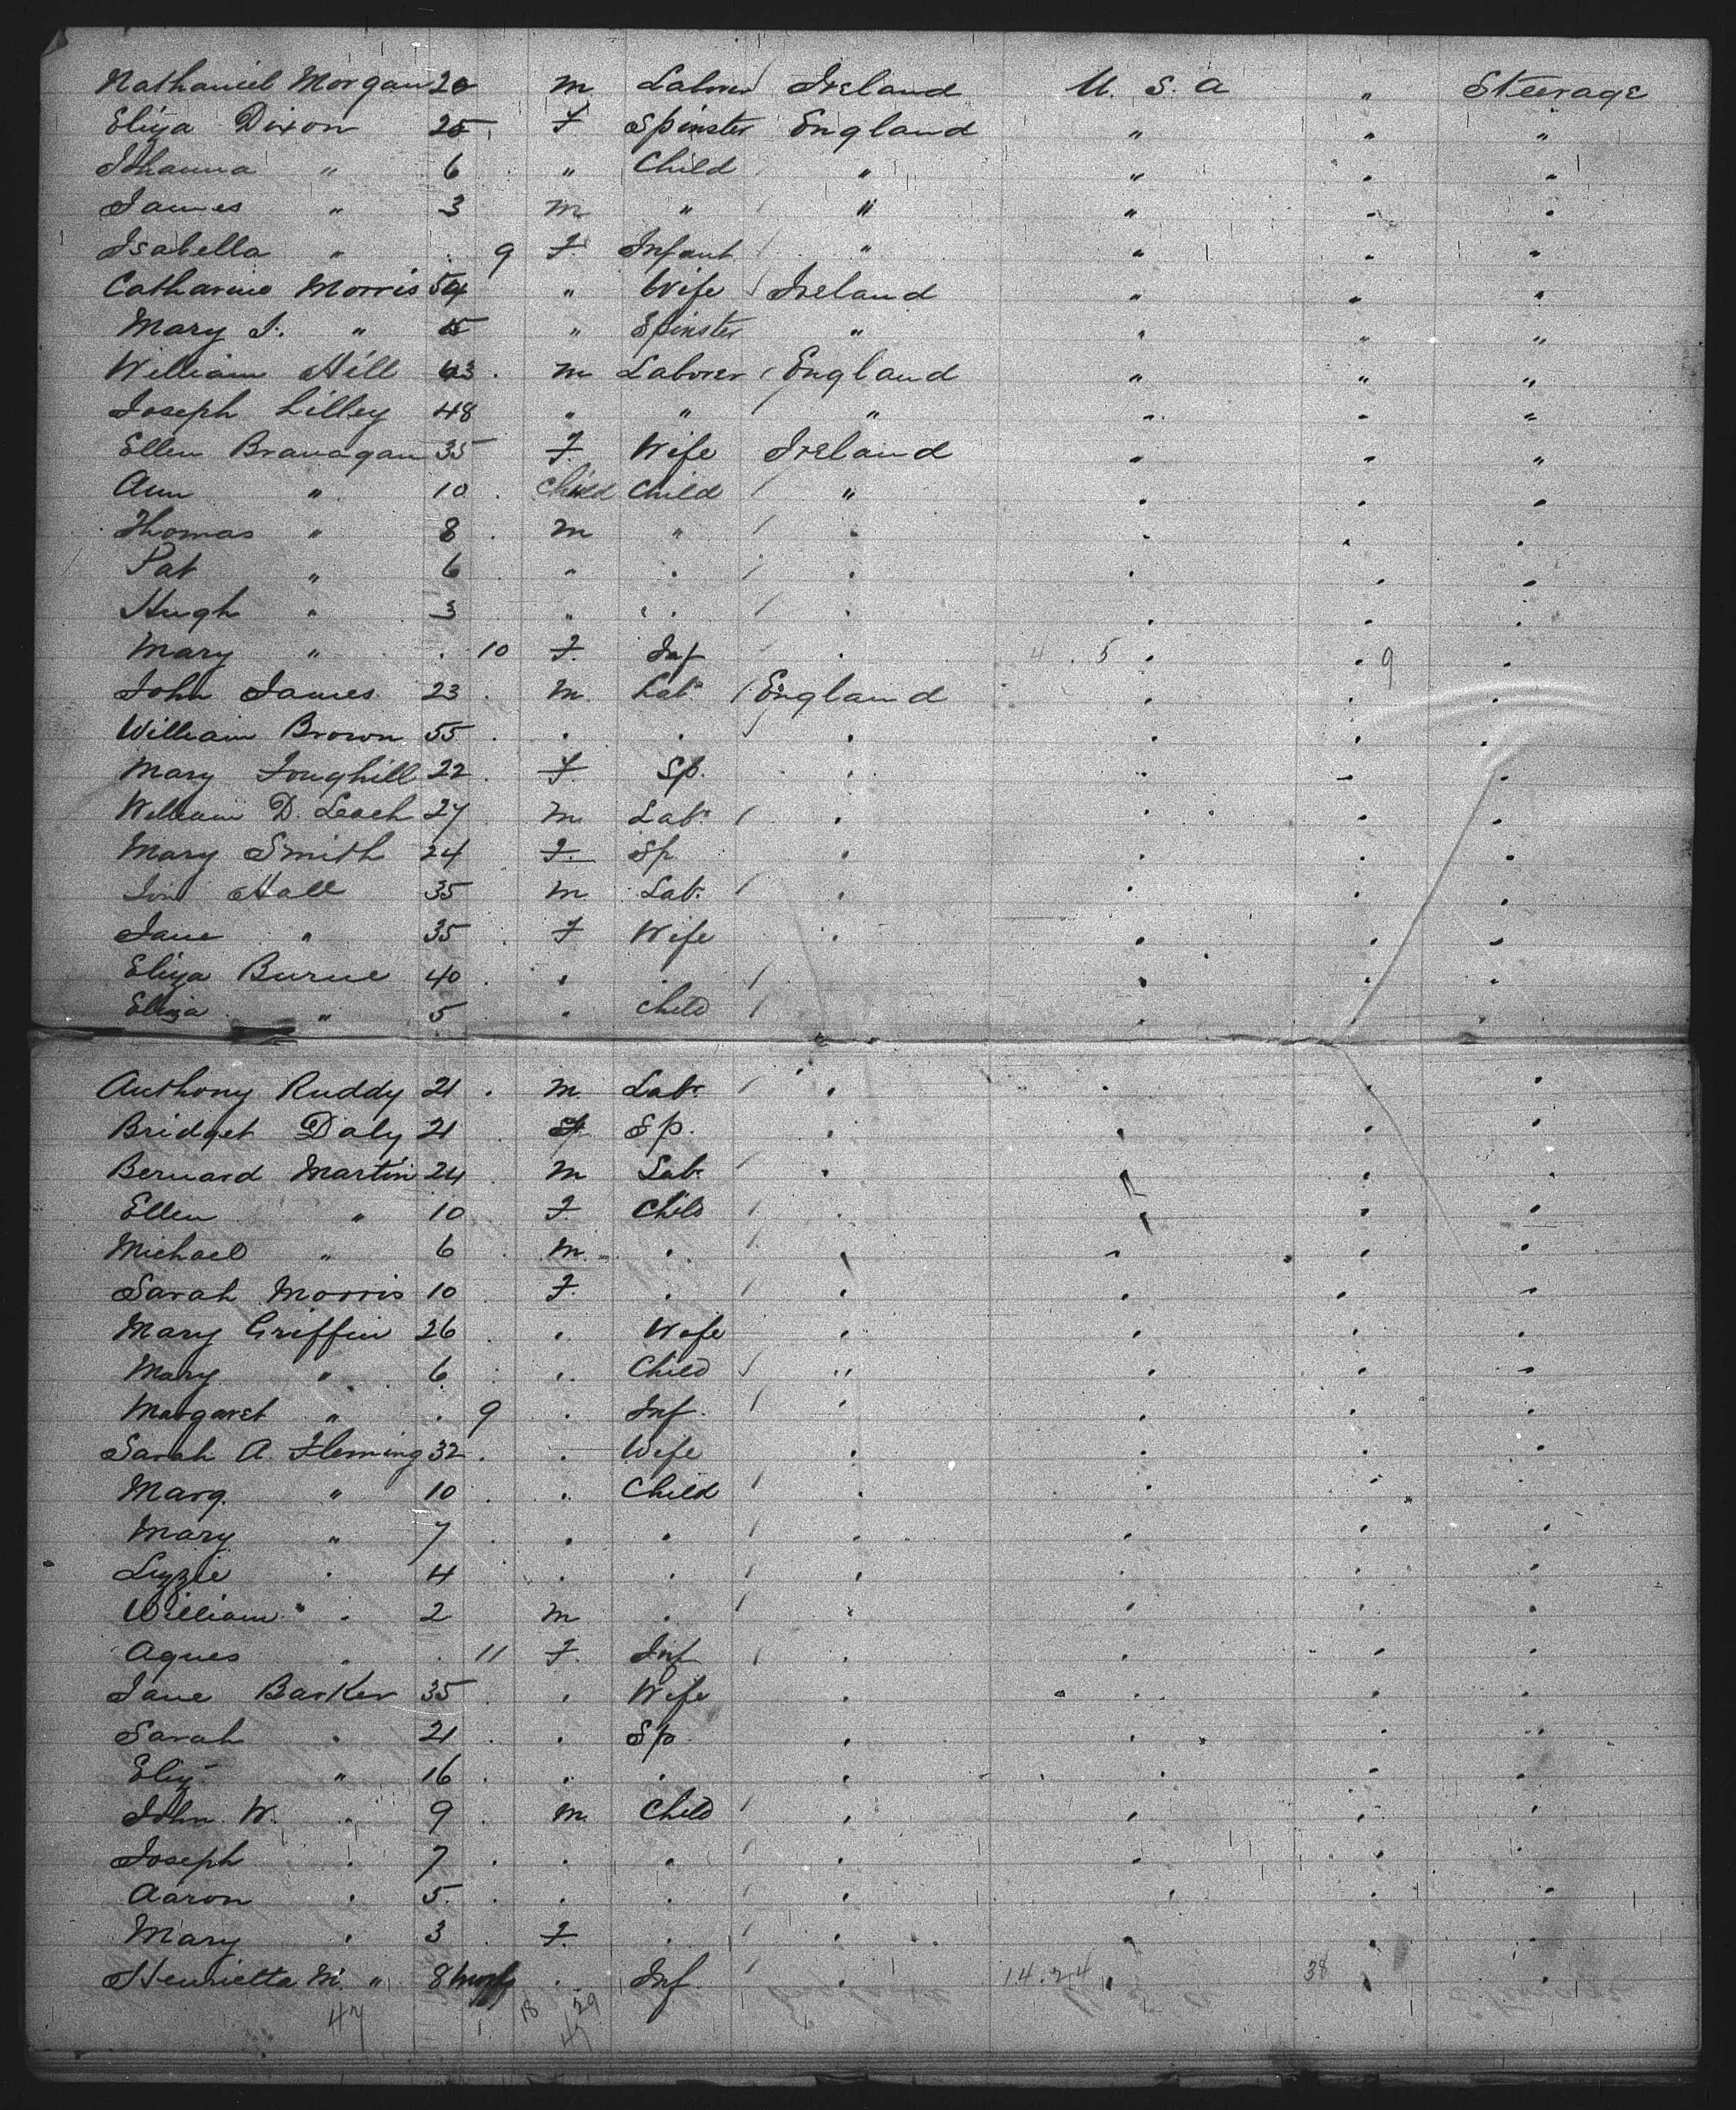 Nathaniel Morgan 20 m Laborer Ireland U. S. A " Steerage
Eliza Dixon 25 F Spinster England " " "
Johanna " 6 " Child " " " "
James " 3 m " " " " "
Isabella " . 9 F. Infant " " " "
Catharine Morris 54 " Wife Ireland " " "
Mary J. " 15 " Spinster " " " "
William Hill 43 . m Laborer England " " "
Joseph Lilley 48 " " " " " "
Ellen Branagan 35 F. Wife Ireland " " "
Ann " 10 . Child Child " " " "
Thomas " 8 . m " " " " "
Pat " 6 " " " " " "
Hugh " 3 " " " " " "
Mary " . 10 F. Inf " 4 . 5 " " 9 "
John James 23 . m. Lab. England " " "
William Brown 55 . " " " " " "
Mary 22 . F. Sp. " " " "
William D. Leach 27 . m. Lab. " " " "
Mary Smith 24 F. Sp " " " "
Hall 35 m Lab. " " " "
Jane " 35 . F Wife " " " "
Eliza Burne 40 . " " " " " "
Eliza " 5 " Child " " "
Anthony Ruddy 21 . m. Lab. " " " "
Bridget Daly 21 . Sp. " " " "
Bernard Martin 24 . m Lab. " " " "
Ellen " 10 F. Child " " " "
Michael " 6 . m. " " " " "
Sarah Morris 10 . F. " " " " "
Mary Griffin 26 . " Wife " " " "
Mary " 6 . " Child " " " "
Margaret " . 9 " Inf. " " " "
Sarah A. Fleming 32 . " Wife " " " "
Marg. " 10 . " Child " " " "
Mary " 7 . " " " " " "
Lizzie " 4 " " " " " "
William " 2 m " " " " "
Agnes " . 11 F. Inf " " " "
Jane Barker 35 . " Wife " " " "
Sarah " 21 . " Sp. " " " "
Eliz " 16 . " " " " " "
John W. " 9 . m. Child " " " "
Joseph " 7 . " " " " " "
Aaron " 5 . " " " " " "
Mary " 3 . F. " " " " "
Henrietta M. " 8 " Inf. " 14.24 " 38 " "
47 18 29
47